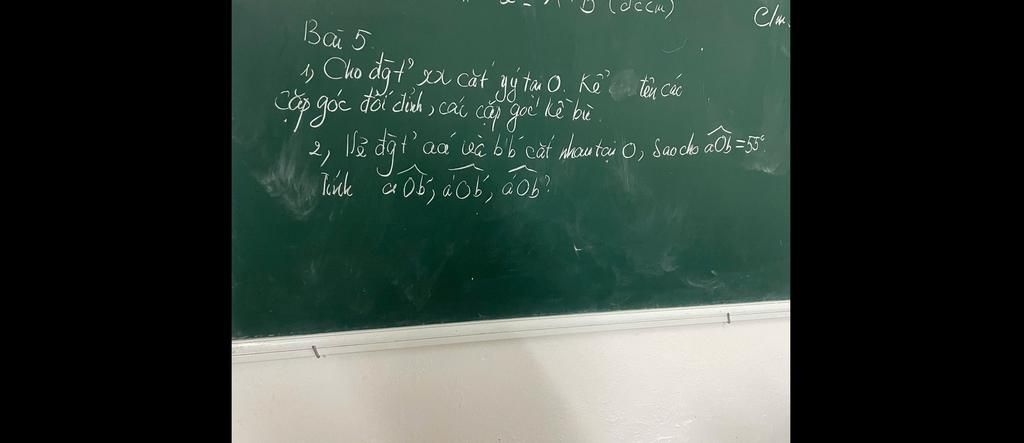 B (đccm)
C/m
Bài 5
1, Cho đgt' xx cắt yý tại O. Kể tên các
cặp góc đối đỉnh, các cặp góc kề bù.
2, Vẽ đgt' aá và bb' cắt nhau tại O, sao cho aOb = 55°
Tính aOb', a'Ob', a'Ob?